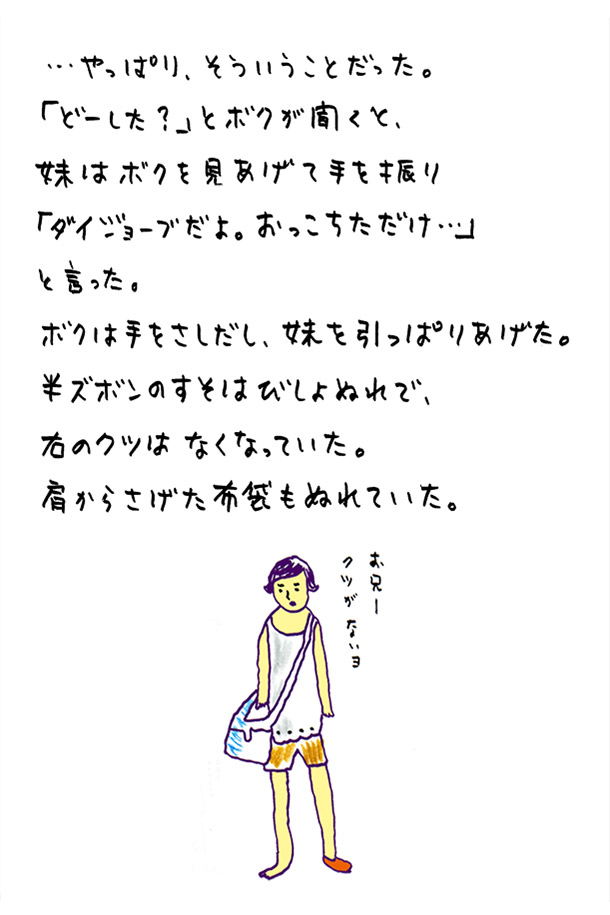 …やっぱり、そういうことだった。
「どーした？」とボクが聞くと、
妹はボクを見あげて手を振り
「ダイジョーブだよ。おっこちただけ…」
と言った。
ボクは手をさしだし、妹を引っぱりあげた。
半ズボンのすそはびしょぬれで、
右のクツは なくなっていた。
肩からさげた布袋もぬれていた。
お兄ー
クツが ないヨ